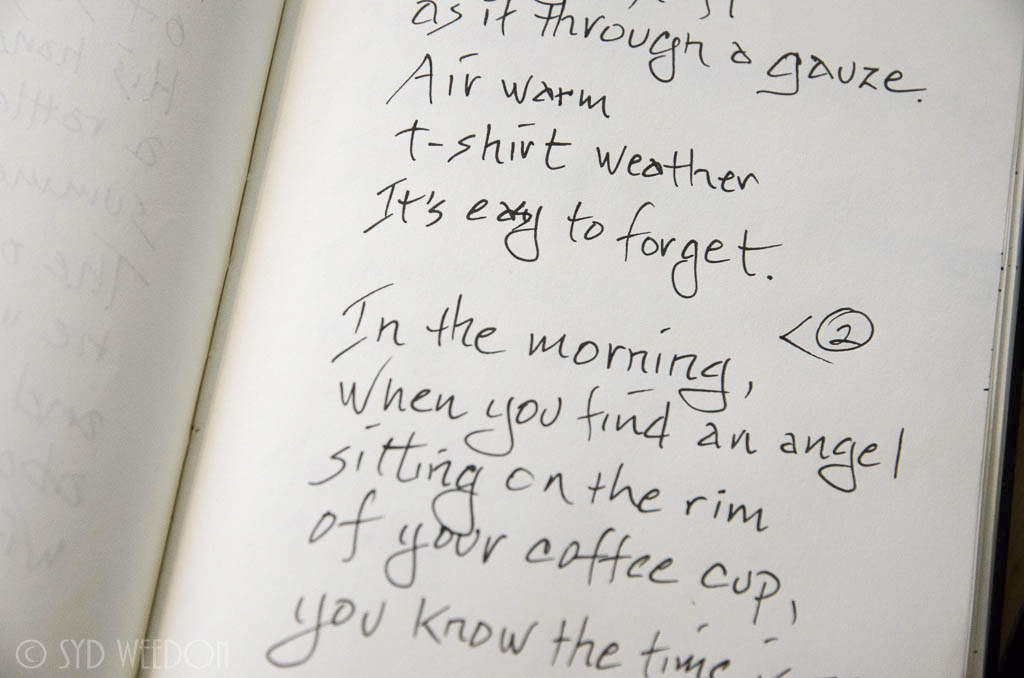 as if through a gauze.
Air warm
t-shirt weather
It's easy to forget.
In the morning, <②
when you find an angel
sitting on the rim
of your coffee cup,
you know the time
© SYD WEEDON